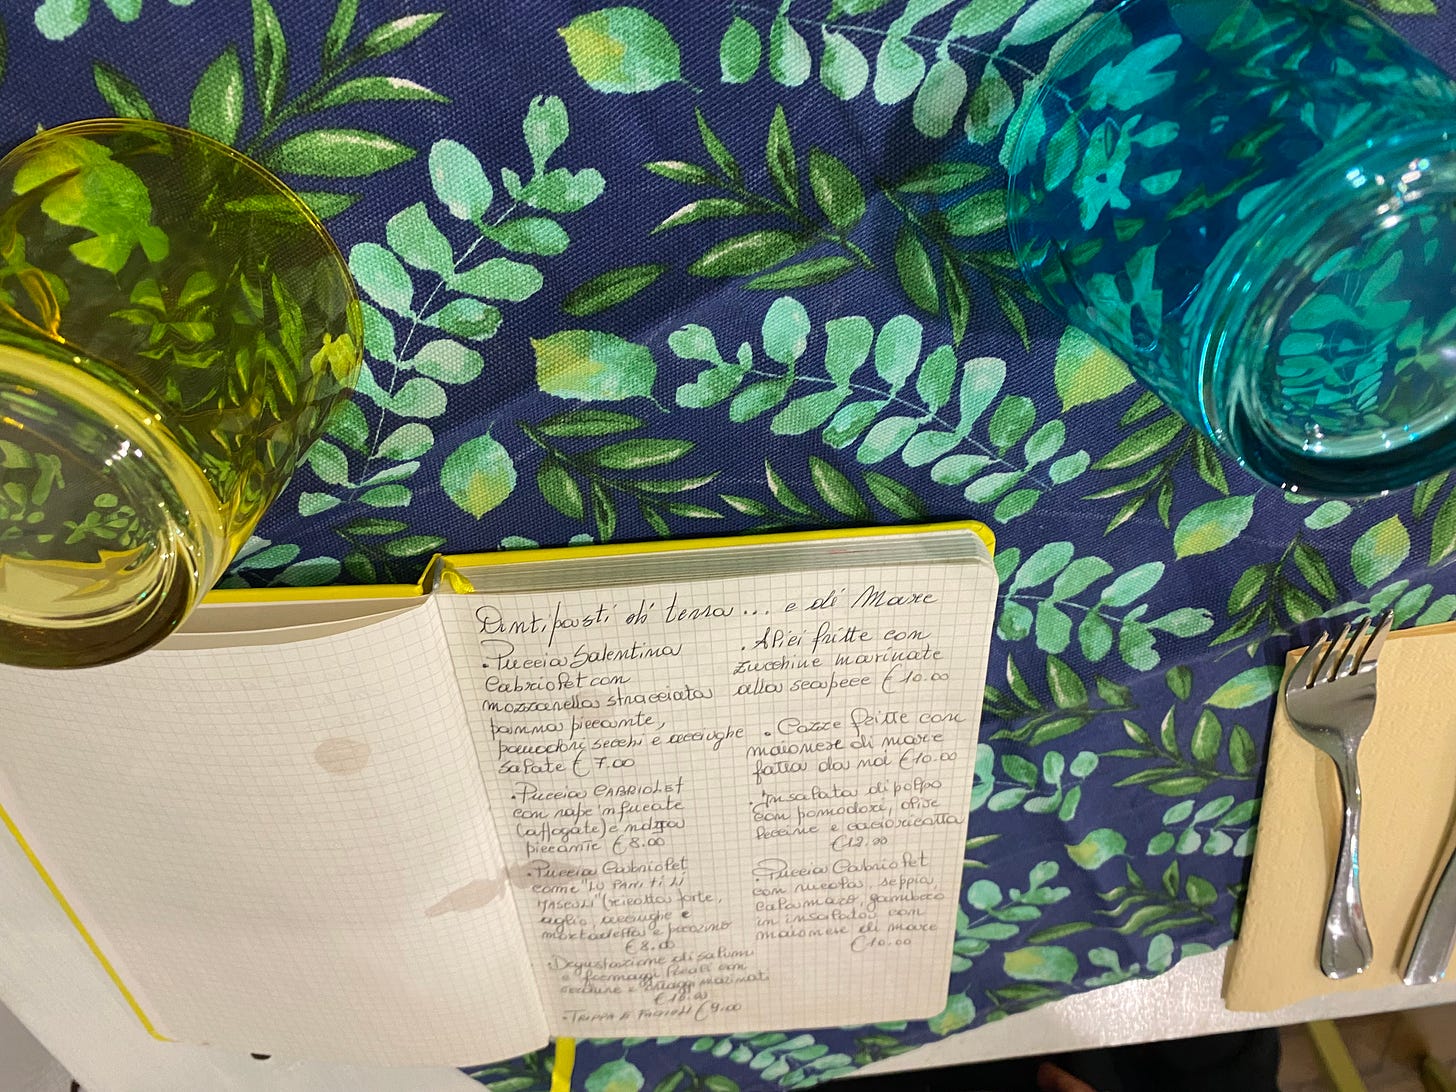 Antipasti di terra ... e di Mare
• Puccia Salentina
Cabriolet con
mozzarella stracciata
panna piccante,
pomodori secchi e acciughe
salate € 7.00
• Puccia CABRIOLET
con rape 'nfucate
(affogate) e
piccante € 8.00
• Puccia Cabriolet
come "LU PARITILI
MASCULI" (ricotta forte,
aglio, acciughe e
mortadella e pecorino
€ 8.00
• Degustazione di salumi
e formaggi locali con
marinati
€ 18.00
• TRIPPA E FAGIOLI € 9.00
• Alici fritte con
zucchine marinate
alla scapece € 10.00
• Cozze fritte con
maionese di mare
fatta da noi € 10.00
• Insalata di polpo
con pomodori, olive
leccine e cacioricotta
€ 12.00
• Puccia Cabriolet
con rucola, seppia,
calamaro, gambero
in insalata con
maionese di mare
€ 10.00